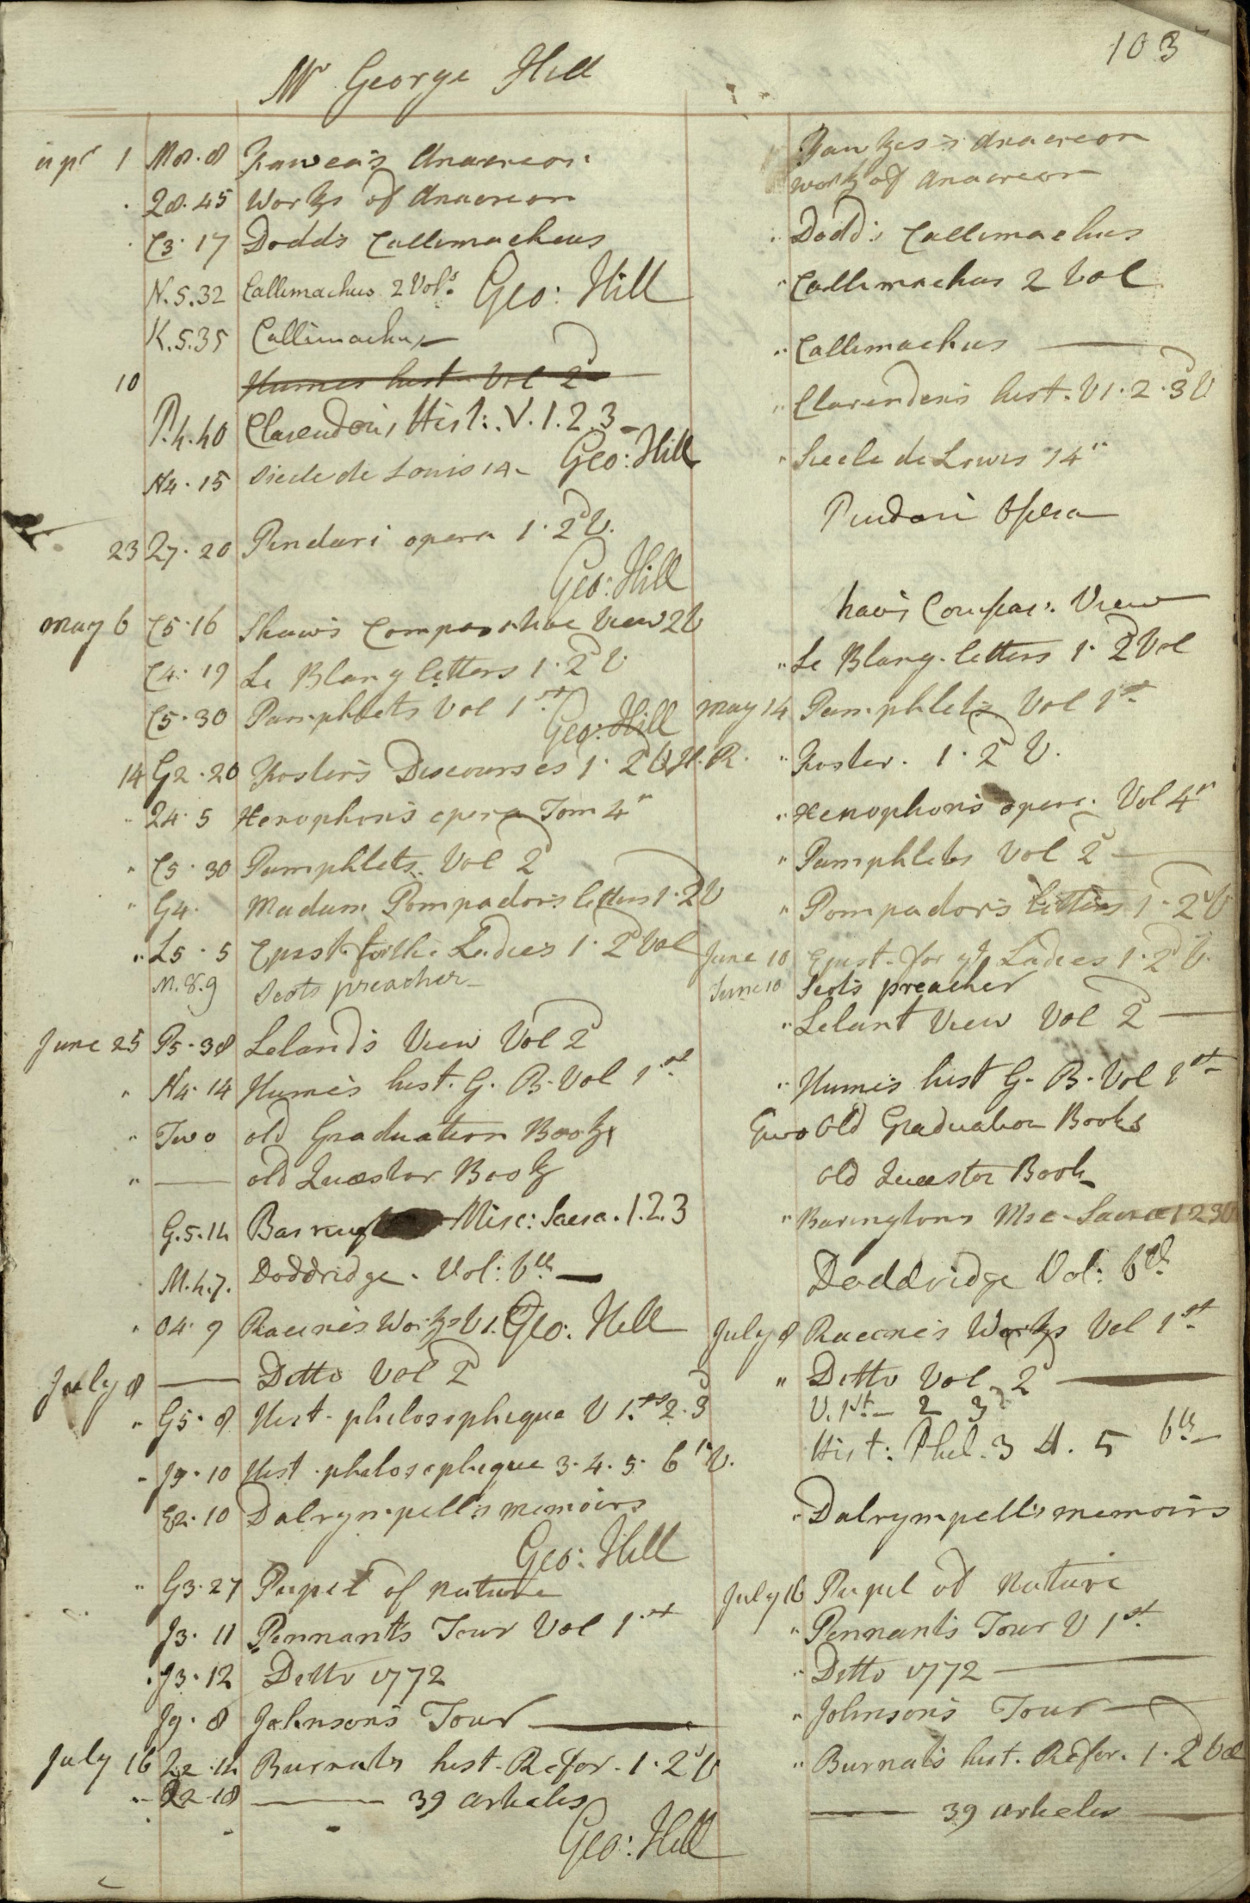 103
Mr George Hill
apr 1 M8.8 Fawces Anacreon Fawkes's Anacreon
28.45 Works of Anacreon works of Anacreon
C3.17 Dodds Callimacheus Dodd's Callimachus
N.5.32 Callimachus 2 Vols. Geo: Hill " Callimachus 2 Vol
K.5.35 Callimachus — " Callimachus —
10 Humes hist Vol 2d
P.4.40 Clarendon's Hist: V.1.2.3 — " Clarendon's hist. V1.2.3d V
N4.15 Siecle de Louis 14 — Geo: Hill " Siecle de Lowis 14"
23 27.20 Pindari opera 1.2d V. Pindari Opera
Geo: Hill
may 6 C5.16 Shaw's Comparative View 2V haw's Compar: View
C4.19 Le Blang letters 1.2d V " Le Blang. letters 1.2d Vol
C5.30 Pamphlets Vol 1st Geo: Hill may 14 Pamphlets Vol 1st
14 G2.20 Foster's Discourses 1.2d V H.R. " Foster. 1.2d V.
24.5 Xenophon's opera Tom 4" " Xenophon's opera. Vol 4"
" C5.30 Pamphlets. Vol 2d " Pamphlets Vol 2d —
" G4. Madam Pompador's letters 1.2d V " Pompador's letters 1.2d V
" L5.5 Epist. for the Ladies 1.2d Vol June 10 Epist. for ye Ladies 1.2d V.
M.8.9 Scots preacher — June 10 Scots preacher
June 25 P5.38 Leland's View Vol 2d " Lelant View Vol 2d —
" N4.14 Hume's hist. G. B. Vol 1st " Hume's hist G. B. Vol 1st
" Two old Graduation Books Two Old Graduation Books
" — old Quæstor Book old Quæstor Book
G.5.14 Barring Misc: Sacra. 1.2.3 " Baringtons Misc. Sacræ 1 2 3d V
M.4.7. Doddridge. Vol: 6th — Doddridge Vol: 6th
" O4.9 Racine's Works V1. Geo: Hill July 8 Racine's Works Vol 1st
July 8 — Ditto Vol 2d " Ditto Vol. 2d —
" G5.8 Hist. philosophique V 1st 2.3d V. 1st — 2 3d
" J9.10 Hist. philosophique 3.4.5.6th V. Hist: Phil. 3 4. 5 6th —
E2.10 Dalrympell's memoirs " Dalrympell's memoirs
Geo: Hill
" G3.27 Pupil of nature July 16 Pupil of Nature
J3.11 Pennant's Tour Vol 1st " Pennant's Tour V 1st
" J3.12 Ditto 1772 " Ditto 1772 —
J9.8 Johnson's Tour — " Johnson's Tour —
July 16 22.14 Burnats hist. Refor. 1.2d V " Burnat's hist. Refor. 1.2d Vol
" 22.18 — 39 articles — 39 articles —
Geo: Hill